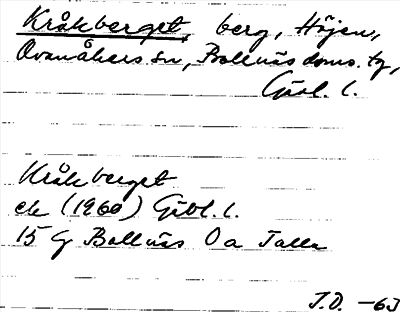 Kråkberget, berg, Höjen,
Ovanåkers sn, Bollnäs doms. tg,
Gävl. l.
Kråkberget
ek (1960) Gävl. l.
15 G Bollnäs 0 a Talln
J.D. -63